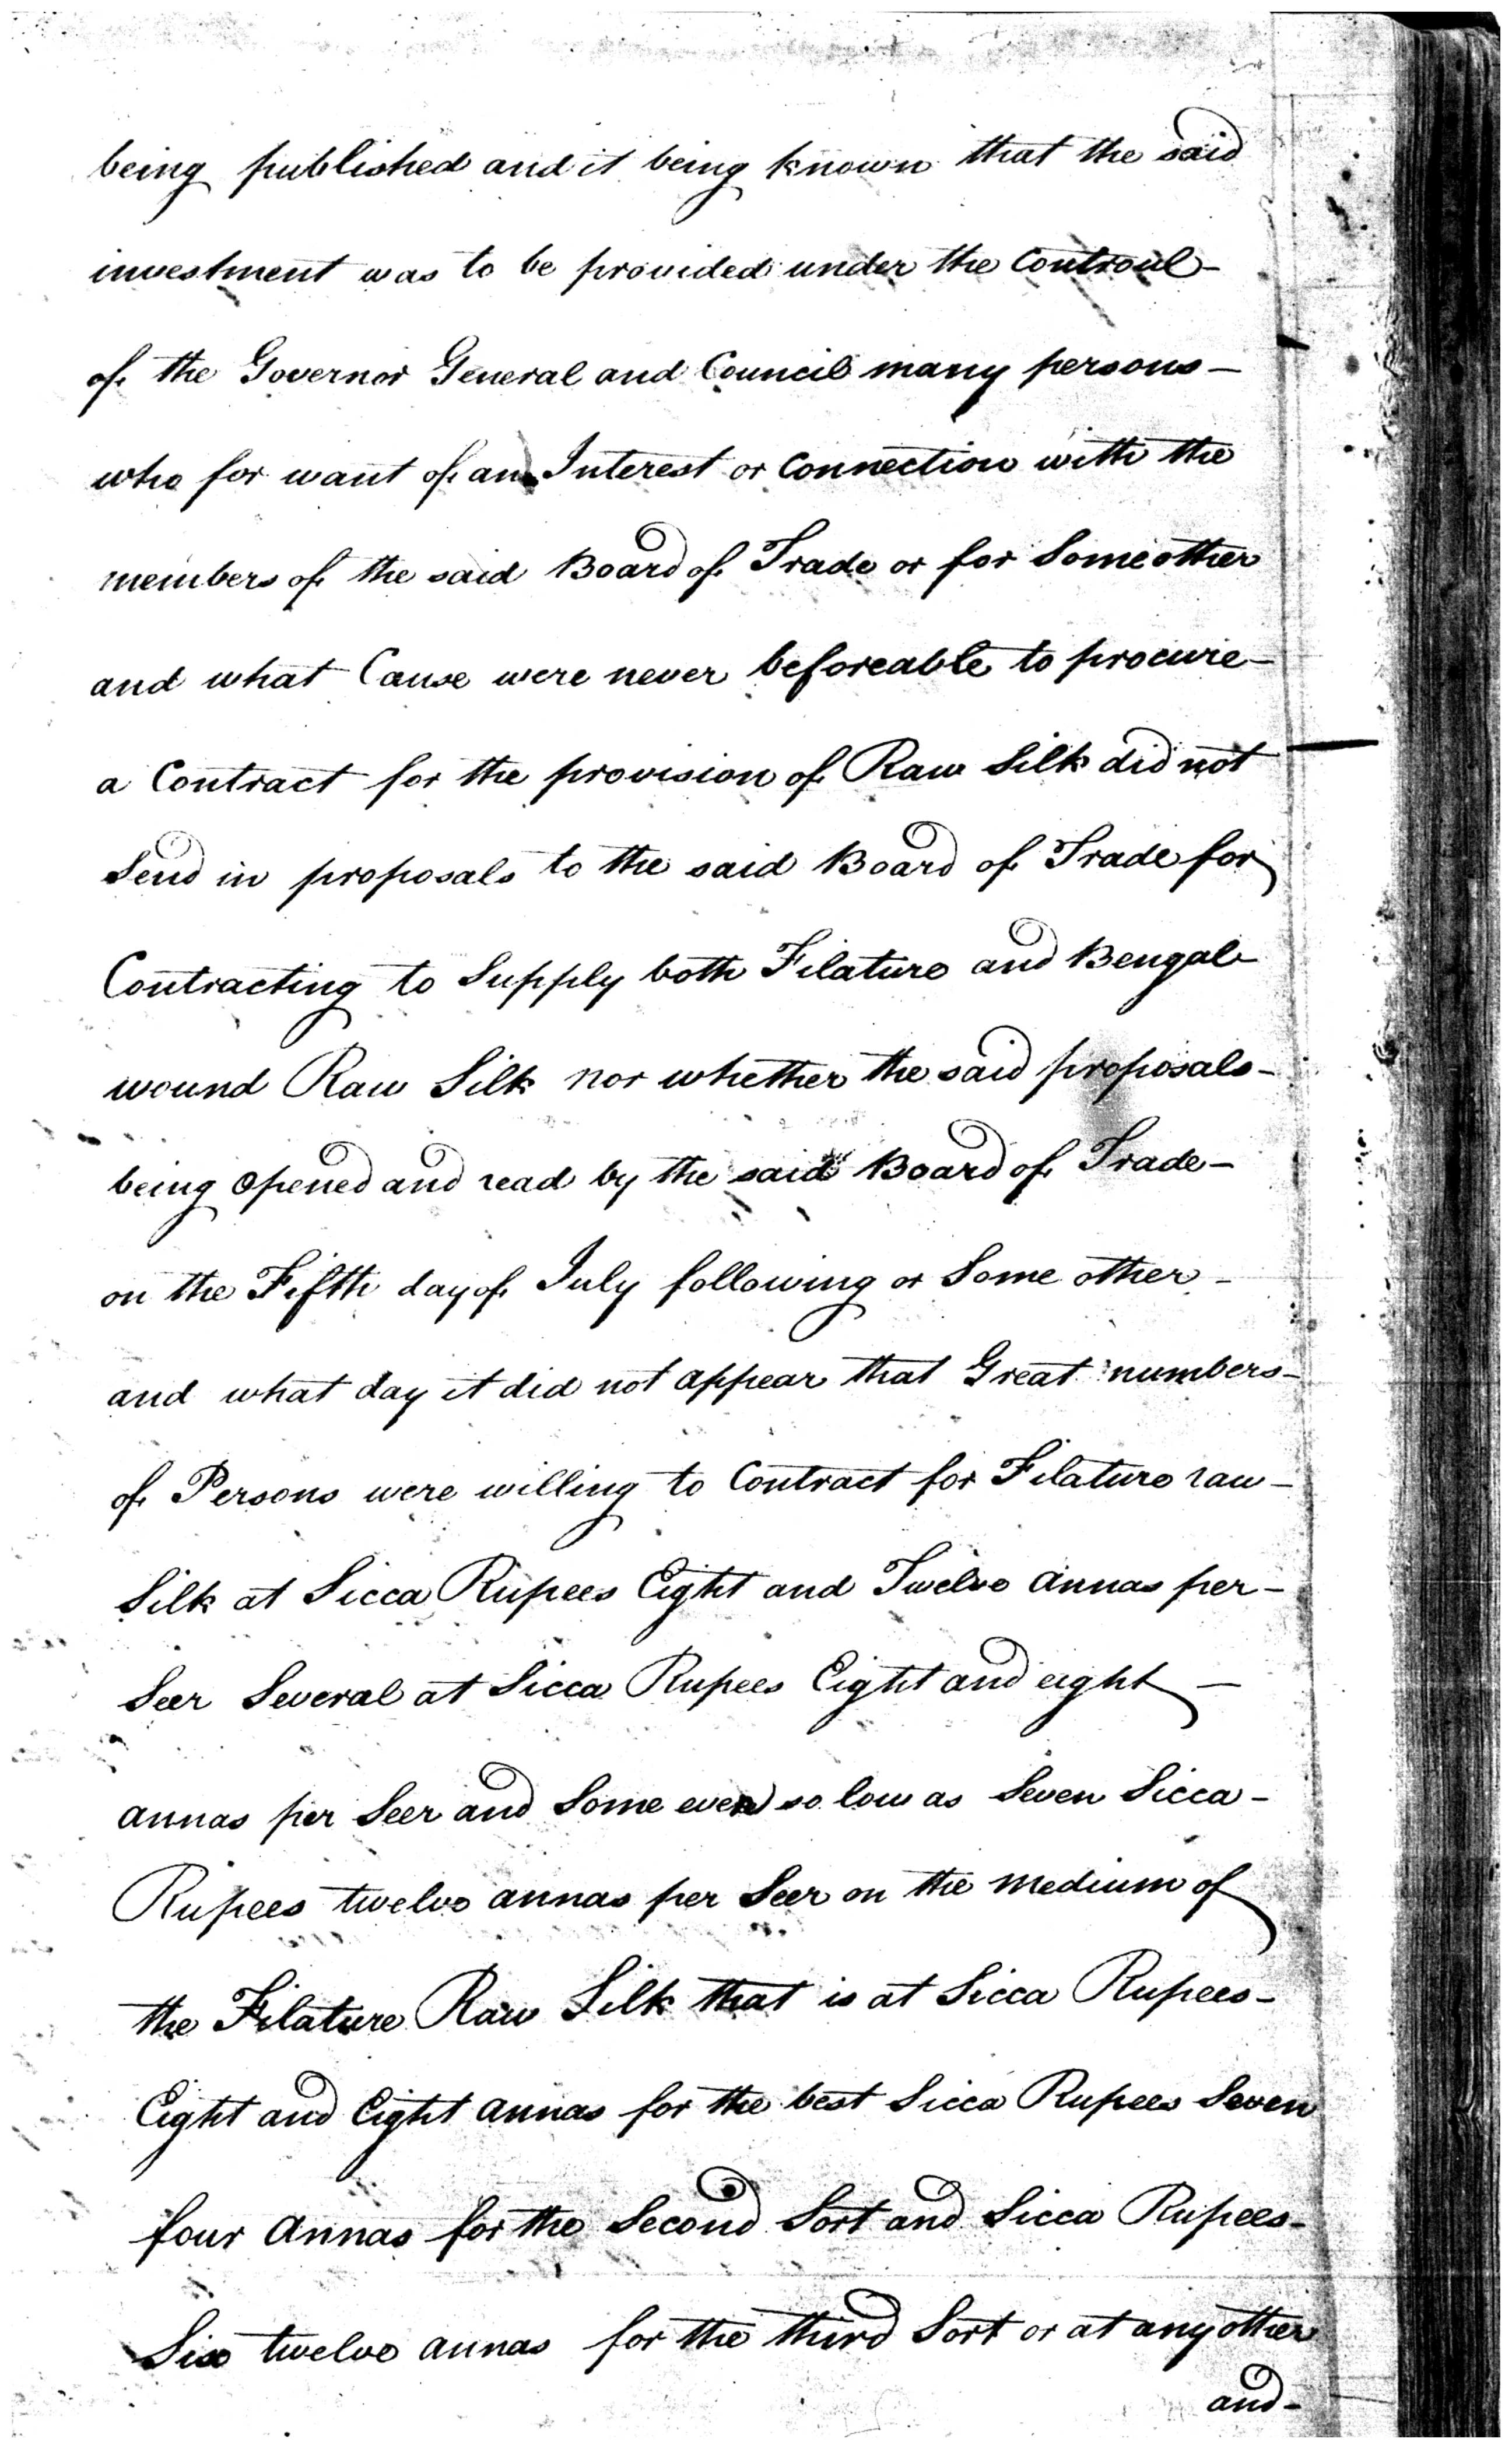 being published and it being known that the said
investment was to be provided under the Controul -
of the Governor General and Council many persons -
who for want of an Interest or Connection with the
members of the said Board of Trade or for Some other
and what Cause were never before able to procure -
a Contract for the provision of Raw Silk did not
Send in proposals to the said Board of Trade for
Contracting to Supply both Filature and Bengal
wound Raw Silk nor whether the said proposals -
being opened and read by the said Board of Trade -
on the Fifth day of July following or Some other -
and what day it did not appear that Great numbers -
of Persons were willing to Contract for Filature raw -
Silk at Sicca Rupees Eight and Twelve annas per -
Seer Several at Sicca Rupees Eight and eight -
annas per Seer and Some even so low as Seven Sicca -
Rupees twelve annas per Seer on the Medium of
the Filature Raw Silk that is at Sicca Rupees -
Eight and Eight annas for the best Sicca Rupees Seven
four annas for the Second Sort and Sicca Rupees -
Six twelve annas for the third Sort or at any other
and -